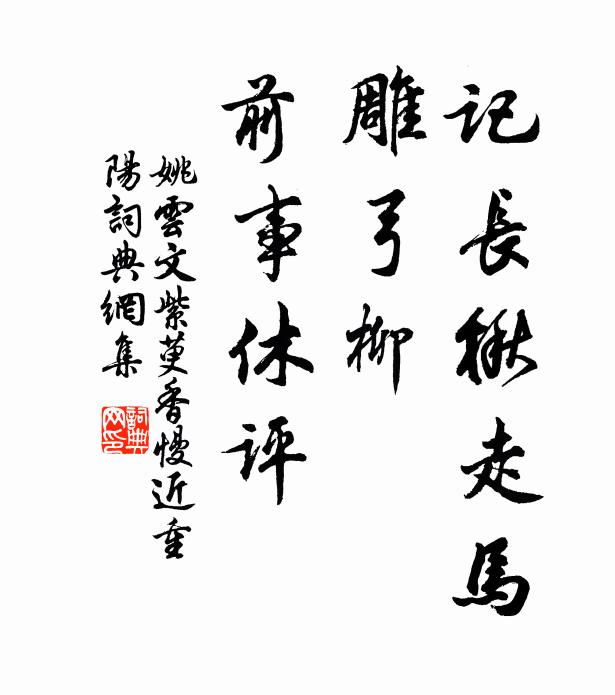 記長楸走馬
雕弓柳
前事休評
姚雲文紫萸香慢近重
陽詞典網集
詞典
网印